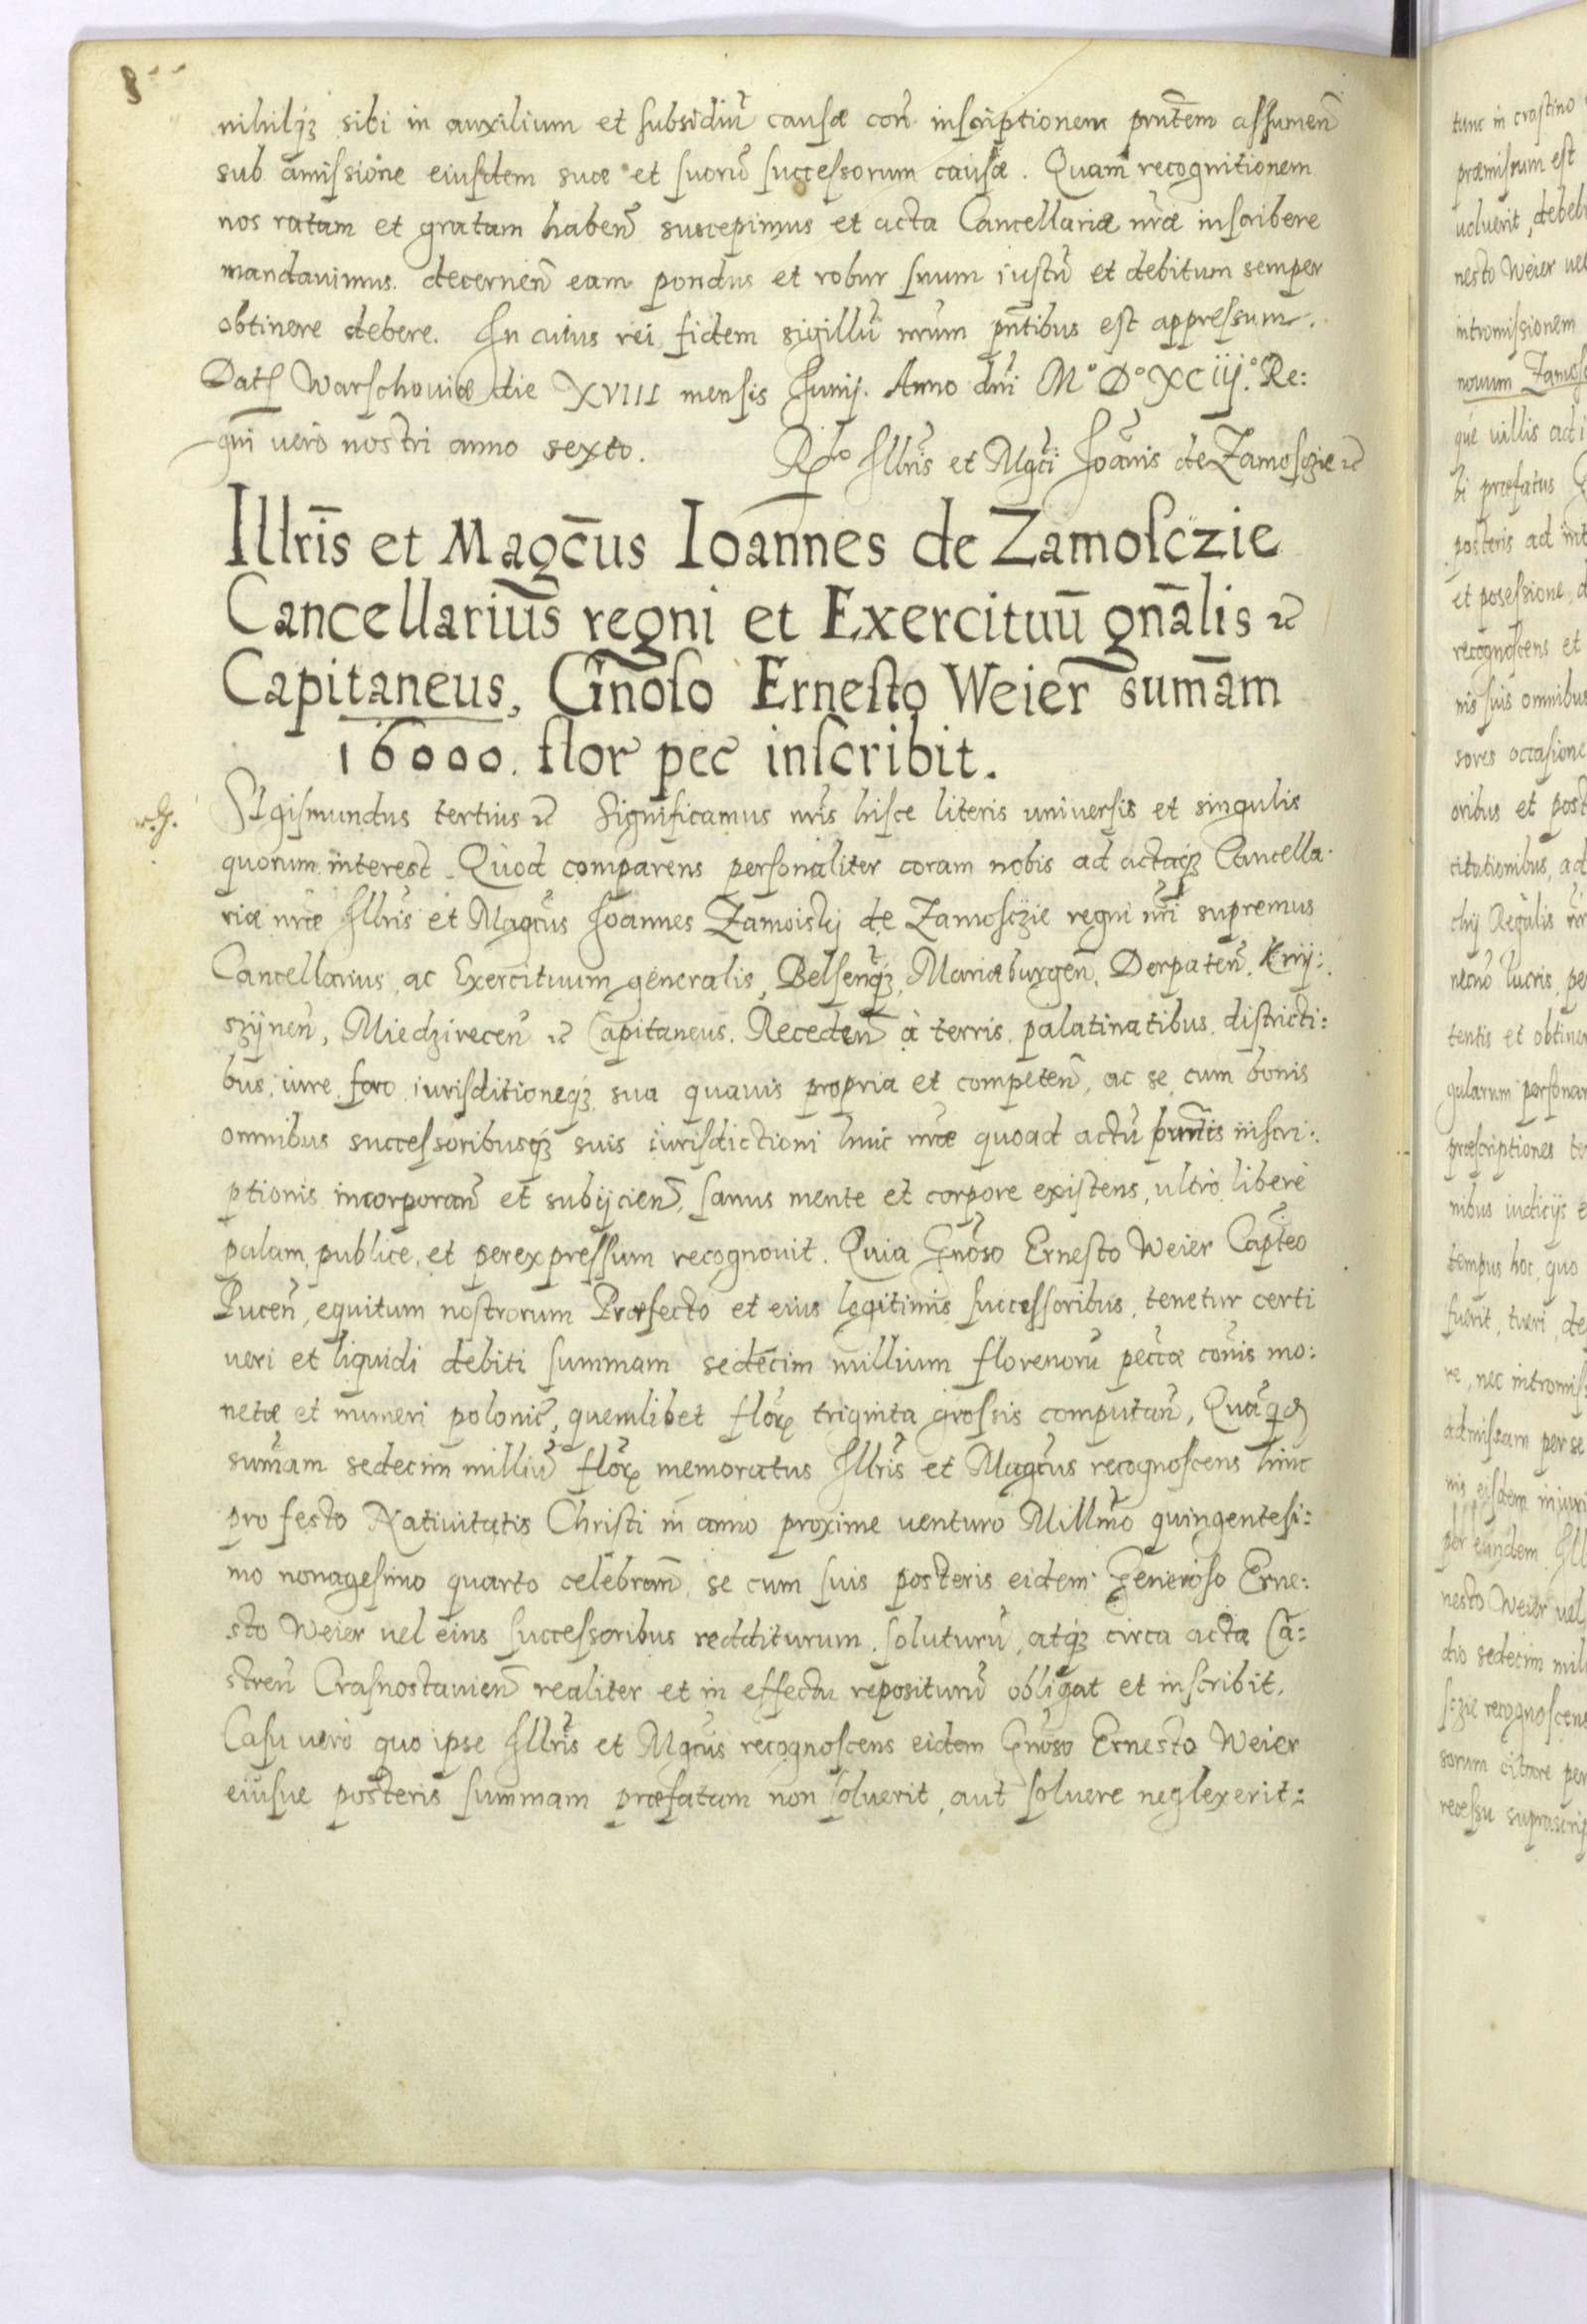 8
nihilq₃ sibi in auxilium et subsidiū causæ con̄ inscriptionem pn̄tem assumen̄
sub amissione eiusdem suæ et suorū successorum causæ. Quam recognitionem
nos ratam et gratam haben̄ suscepimus et acta Cancellariæ nr̄æ inscribere
mandauimus. decernen̄ eam pondus et robur suum iustū et debitum semper
obtinere debere. In cuius rei fidem sigillū nr̄um pn̄tibus est appressum.
Dat̄ Warschouiæ die XVIII mensis Junij. Anno dn̄i M° D° XC iij.° Re:
gni vero nostri anno sexto. R̄lo Illris et Mgc̄i Joānis de Zamosczie ꝛc̄
Illris̄ et Magc̄us Ioannes de Zamosczie
Cancellarius regni et Exercituū gn̄alis ꝛc̄
Capitaneus, Gn̄oso Ernesto Weier sum̄am
16000. flor pec̄ inscribit.
Sigismundus tertius ꝛc̄ Significamus nr̄is hisce literis universis et singulis
quorum interest. Quod comparens personaliter coram nobis ad actaq₃ Cancella:
riæ nr̄æ Illris̄ et Magc̄us Joannes Zamoiskj de Zamosczie regni nr̄i supremus
Cancellarius, ac Exercituum generalis, Belsen̄q₃, Mariæburgen̄, Derpaten̄, Knÿ:
szÿnen̄, Miedzirecen̄ ꝛc̄ Capitaneus. Receden̄ à terris, palatinatibus, districti:
bus, iure, foro, iurisditioneq₃ sua quauis propria et competen̄, ac se cum bonis
omnibus successoribusq₃ suis iurisdictioni huic nr̄æ quoad actū pn̄tis inscri:
ptionis incorporan̄ et subijcien̄, sanus mente et corpore existens, ultrò liberè
palam, publice, et perexpressum recognouit. Quia Gn̄oso Ernesto Weier Capt̄eo
Pucen̄, equitum nostrorum Præfecto et eius legitimis successoribus, tenetur certi
ueri et liquidi debiti summam sedecim millium florenorū pecc̄æ com̄is mo:
netæ et numeri polonic̄, quemlibet flōrꝝ triginta grossis computan̄, Quāquid̄
sum̄am sedecim milliū flōrꝝ memoratus Illris̄ et Magc̄us recognoscens hinc
pro festo Natiuitatis Christi in anno proxime venturo Millm̄o quingentesi:
mo nonagesimo quarto celebran̄, se cum suis posteris eidem Generoso Erne:
sto Weier uel eius successoribus redditurum, soluturū, atq₃ circa acta Ca:
stren̄ Crasnostauien̄ realiter et in effectu repositurū obligat et inscribit.
Casu verò quo ipse Illris̄ et Mgc̄us recognoscens eidem Gn̄oso Ernesto Weier
eiusue posteris summam præfatam non soluerit, aut soluere neglexerit:
tunc in crastino
præmissum est
uoluerit, debeb
nesto Weier uel
intromissionem
nouum Zamosc
que uillis ad i
bi præfatus G
posteris ad int
et possessione, d
recognoscens et
nis suis omnibus
sores occasione
oribus et post
citationibus, ad
chij Regalis nr
necnō lucris, pe
tentis et obtine
gularum personar
præscriptiones te
nibus iudicijs e
tempus hoc, quo
fuerit, tueri, de
re, nec intromis
admissam per se
nis eisdem iniuri
per eundem Ill
nesto Weier uel
dio sedecim mill
sczie recognoscens
sorum citare per
recessu suprascrip